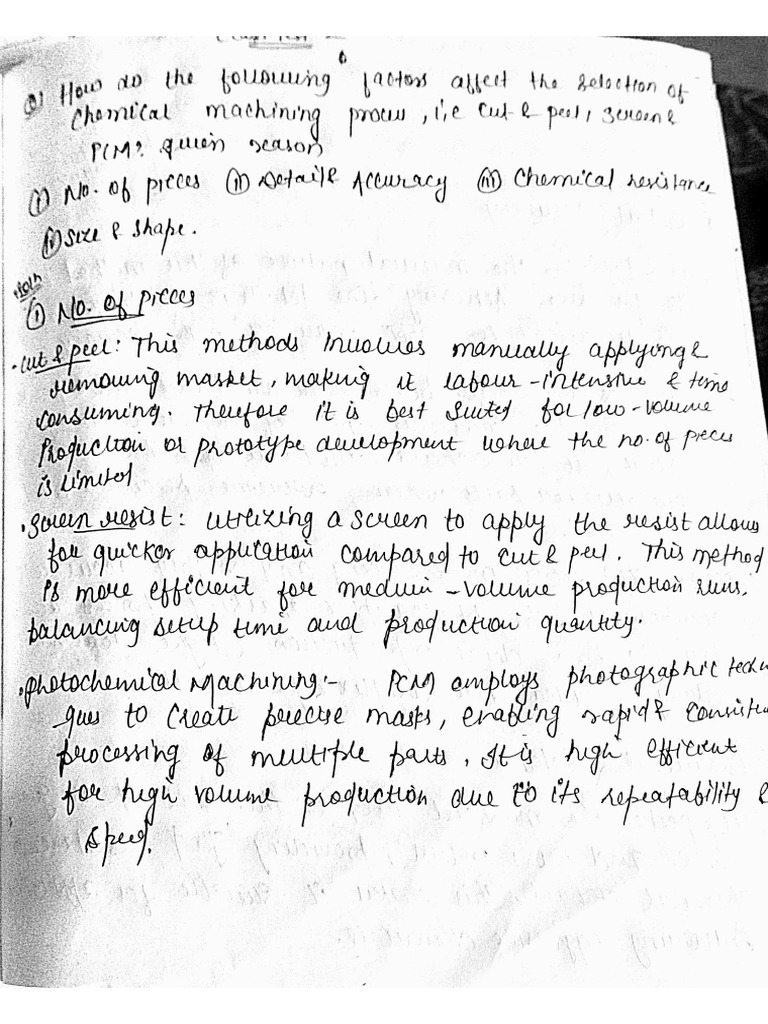 Class Test - 2
Q) How do the following factors affect the selection of
Chemical machining process, i,e cut & peel, screen &
PCM? given reason
(i) No. of pieces (ii) Detail & Accuracy (iii) Chemical resistance
(iv) Size & shape.
Soln
(i) No. of pieces
• Cut & peel: This methods involves manually applying &
removing market, making it labour-intensive & time
consuming. Therefore it is best suited for low-volume
production or prototype development where the no. of pieces
is limited
• Screen resist: utilizing a screen to apply the resist allows
for quicker application compared to cut & peel. This method
is more efficient for medium-volume production runs,
balancing setup time and production quantity.
• photochemical Machining:- PCM employs photographic techni
ques to create precise masks, enabling rapid & consisten
processing of multiple parts. It is high efficient
for high volume production due to its repeatability &
speed.